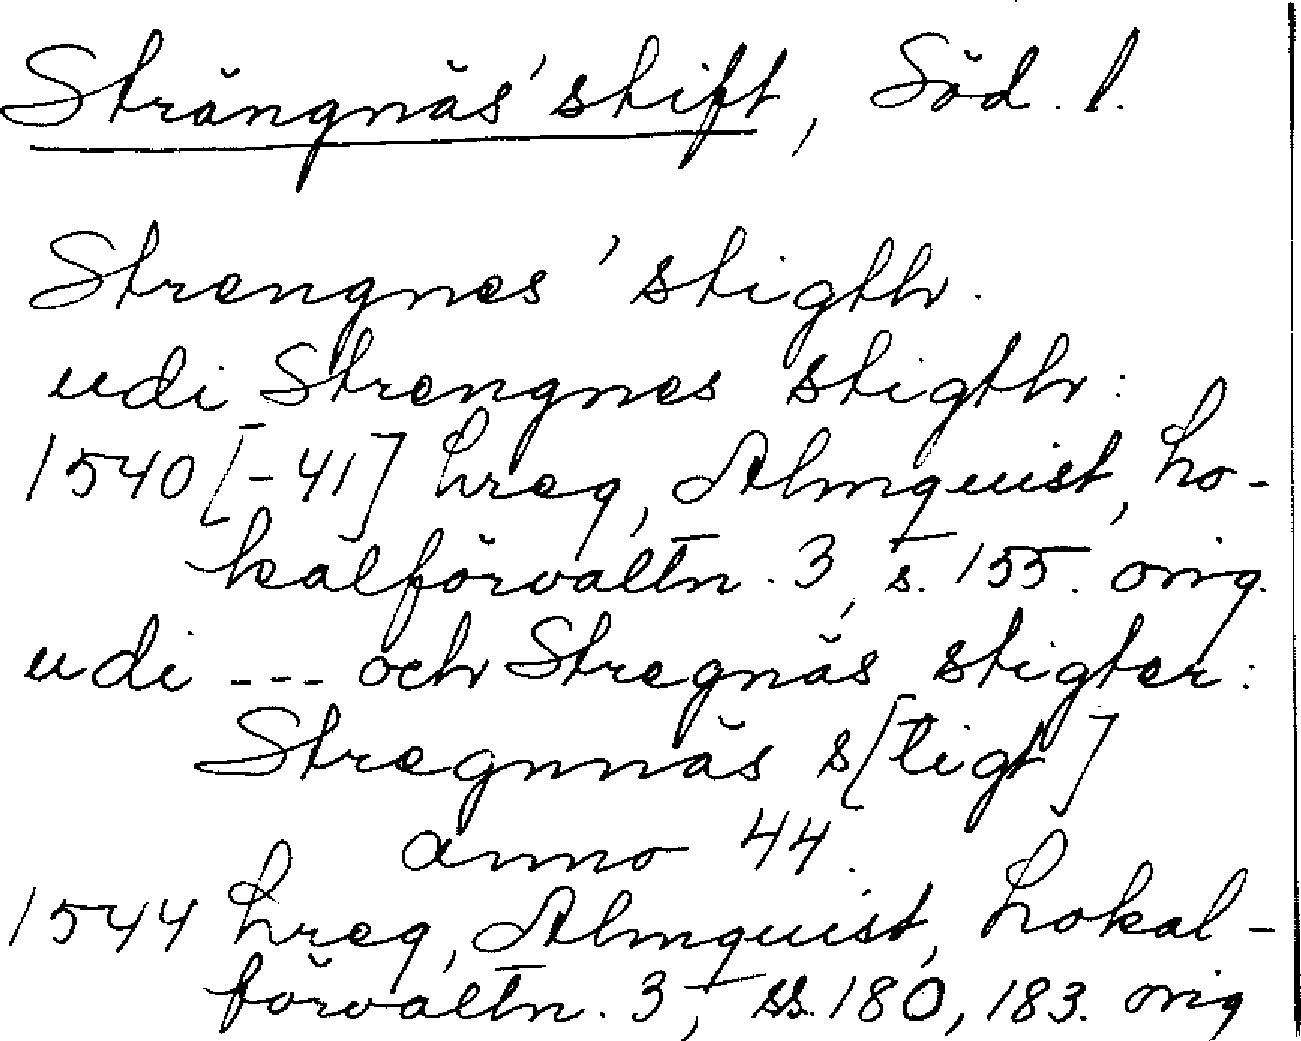 Strängnäs' stift, Söd. l.
Strengnes' stigth.
udi Strengnes stigth:
1540 [-41] Lreg, Almquist, Lo-
kalförvaltn. 3, s. 155. orig.
udi --- och Stregnäs stigter:
Stregnnäs s[tigt]
anno 44.
1544 Lreg, Almquist, Lokal-
förvaltn. 3, ss. 180, 183. orig